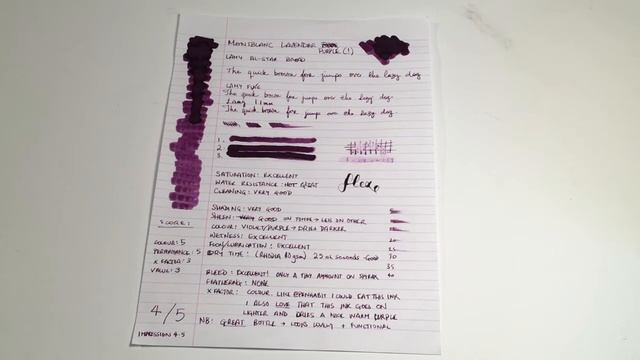 MONTBLANC LAVENDER PURPLE (1)
LAMY AL-STAR BROAD
The quick brown fox jumps over the lazy dog
LAMY
The quick brown fox jumps over the lazy dog
Lamy 1.1mm
The quick brown fox jumps over the lazy dog
1.
2
3.
flex
SATURATION: EXCELLENT
WATER RESISTANCE: NOT GREAT
CLEANING: VERY GOOD
SHADING: VERY GOOD
SHEEN: GOOD ON → LESS IN OTHER
COLOUR: VIOLET/PURPLE → DRIES DARKER
WETNESS: EXCELLENT
FLOW/LUBRICATION: EXCELLENT
DRY TIME: (RHODIA 80gsm) 25 SECONDS - GOOD
20
25
30
35
40
BLEED: EXCELLENT! ONLY A TINY AMOUNT ON
FEATHERING: NONE
X FACTOR: COLOUR. LIKE I COULD EAT THIS INK
I ALSO LOVE THAT THIS INK GOES ON
LIGHTER AND DRIES A NICE WARM PURPLE
NB: GREAT BOTTLE → LOOKS LOVELY + FUNCTIONAL
SCORE:
COLOUR: 5
PERFORMANCE: 5
X FACTOR: 3
VALUE: 3
4/5
IMPRESSION 4.5